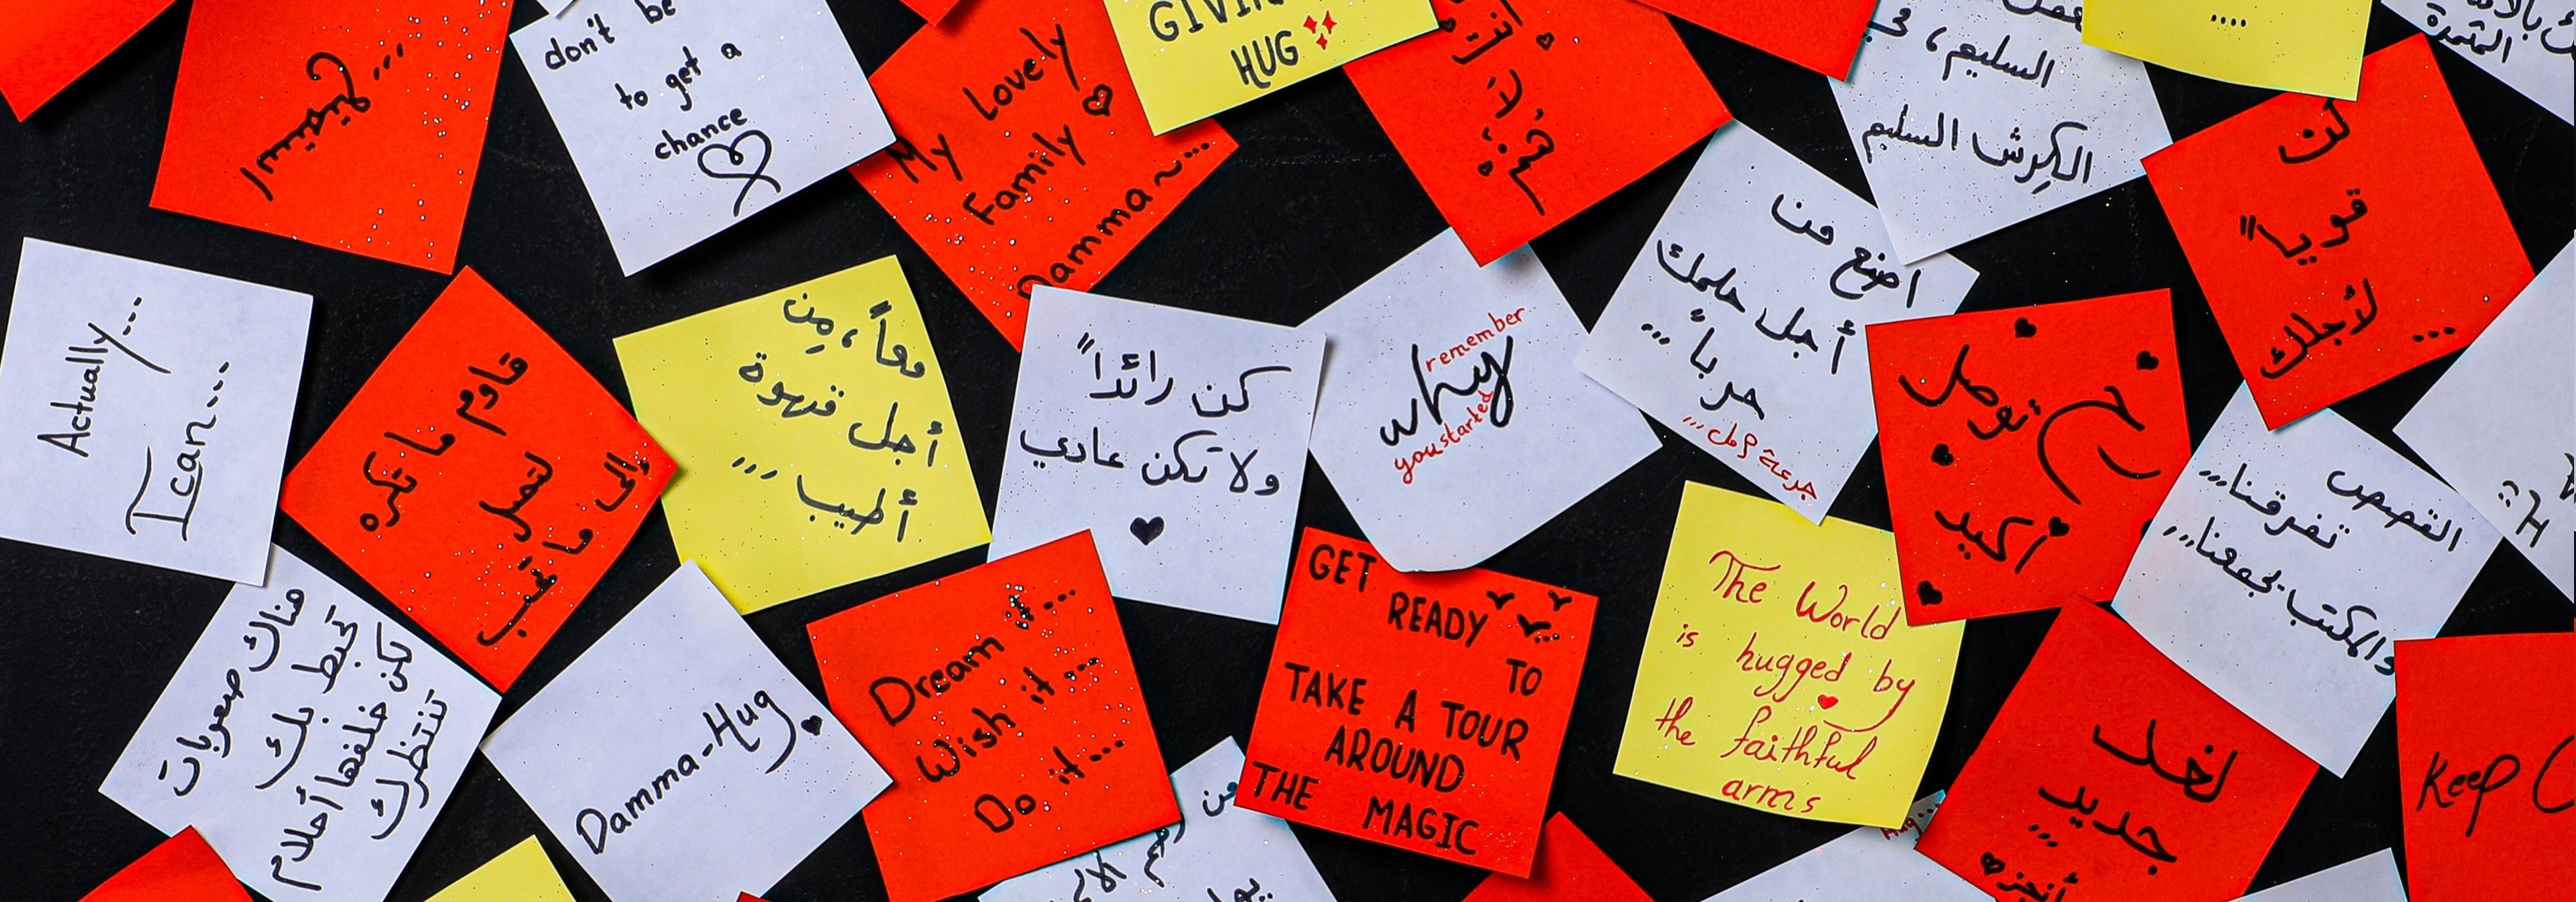 don't be
to get a
chance
My Lovely
Family
Damma~...
GIVING
HUG
السليم، في
الكرش السليم
لن
قويا"
لأجلك ...
Actually...
I can...
قاوم ما تكره
لتصل
إلى ما تحب
معاً، مِن
أجل قهوة
أطيب ...
كن رائدا"
ولا تكن عادي
remember
why
you started
اصنع من
أجل حلمك
حرباً ...
جرعة أمل ...
رح توصل
أكيد
القصص
تفرقنا...
والمكتب يجمعنا...
هناك صعوبات
تحبط بك
لكن خلفها أحلام
تنتظرك
Damma-Hug
Dream it...
Wish it...
Do it...
GET
READY
TO
TAKE A TOUR
AROUND
THE MAGIC
The World
is hugged by
the faithful
arms
لغد
جديد
...
أنجز
Keep
من
Hug...